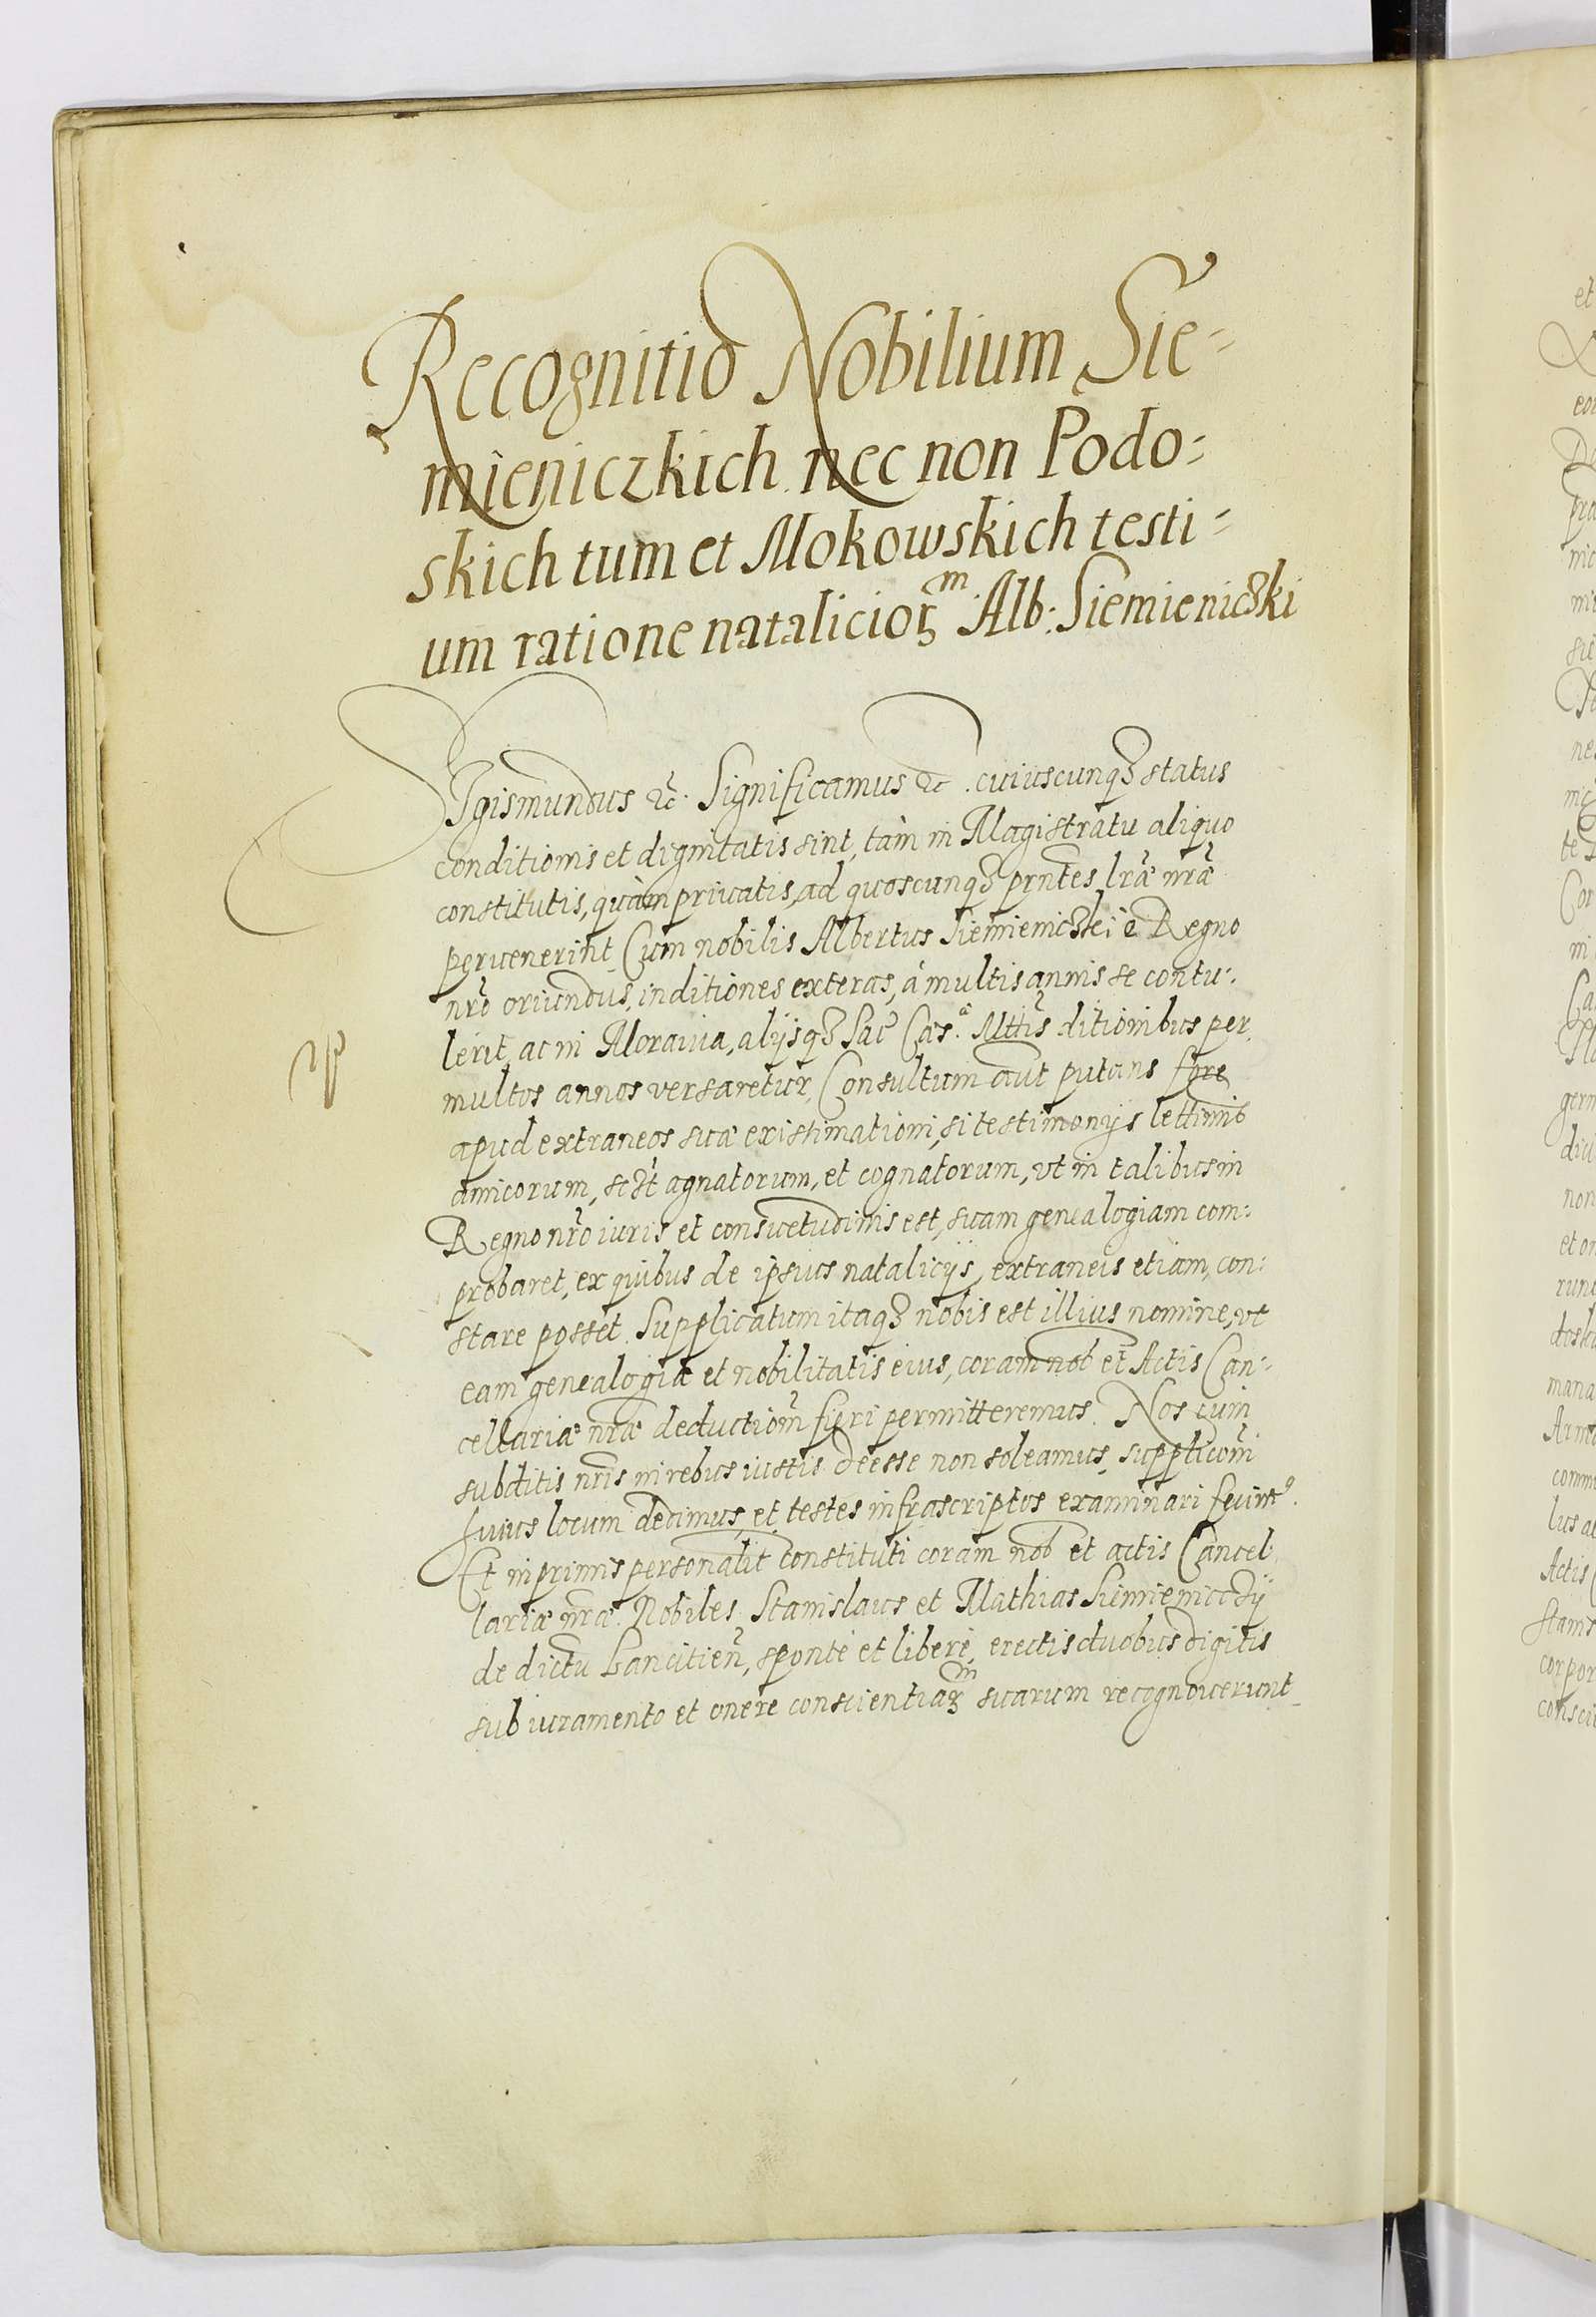 Recognitio Nobilium Sie=
mieniczkich nec non Podo=
skich tum et Mokowskich testi=
um ratione nataliciorꝫ m Alb: Siemieniczki
SIgismundus &c. Significamus &c. cuiuscunqꝫ status
conditionis et dignitatis sint, tàm in Magistratu aliquo
constitutis, quàm priuatis, ad quoscunqꝫ prntes lræ nræ
peruenerint. Cum nobilis Albertus Siemieniczki è Regno
nro oriundus, in ditiones exteras, à multis annis se contu:
lerit, ac in Morauia, alijsqꝫ Sac Cæs. Mttis ditionibus per
multos annos versaretur, Consultum aut putans fore
apud extraneos suæ existimationi, si testimonijs lettimis
amicorum, sczt agnatorum, et cognatorum, vt in talibus in
Regno nro iuris et consuetudinis est, suam genealogiam com:
probaret, ex quibus de ipsius natalicijs, extraneis etiam, con:
stare posset. Supplicatum itaqꝫ nobis est illius nomine, vt
eam genealogiæ et nobilitatis eius, coram nob et Actis Can:
cellariæ nræ deductiom fieri permitteremus. Nos cum
subditis nris in rebus iustis deesse non soleamus, supplicōni
huius locum dedimus, et testes infrascriptos examinari fecim⁹.
Et inprimis personalit constituti coram nob et actis Cancel
lariæ nræ. Nobiles Stanislaus et Mathias Siemienicczij
de dictu Lancitien, sponte et liberè, erectis duobus digitis
sub iuramento et onere conscientiaꝝ m suarum recognouerunt